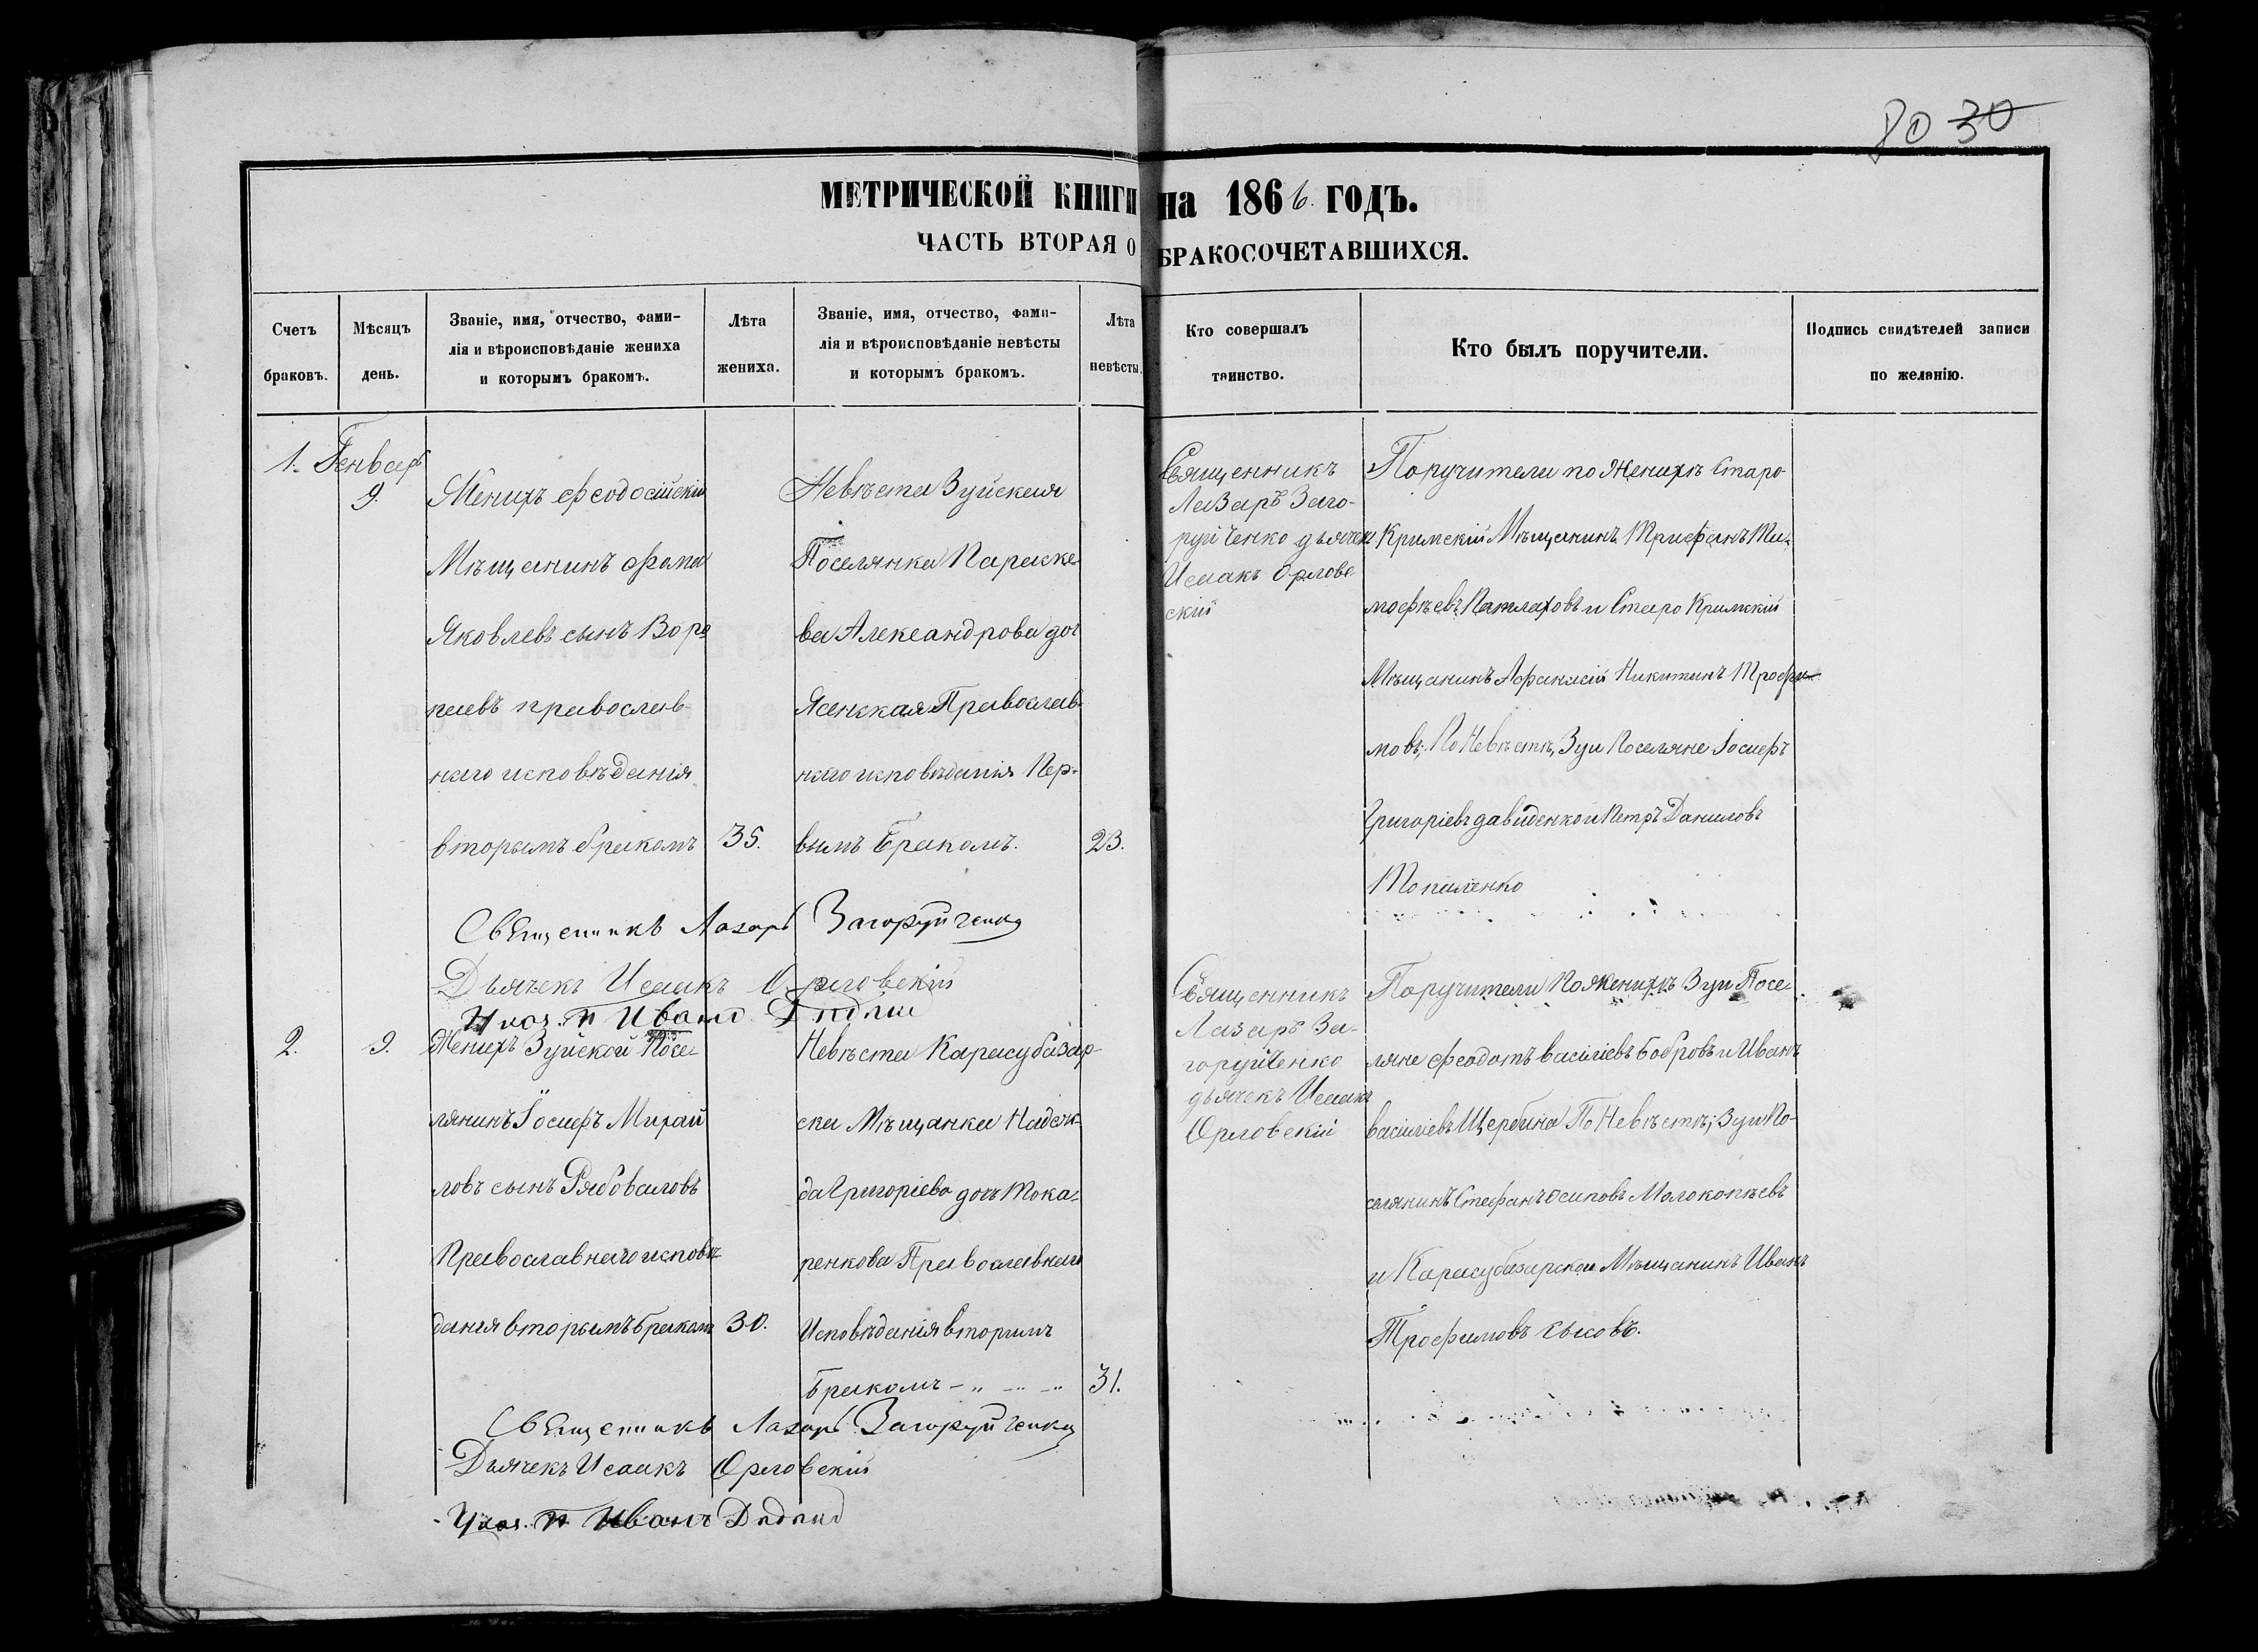 80 30
МЕТРИЧЕСКОЙ КНИГИ на 1866. ГОДЪ.
ЧАСТЬ ВТОРАЯ О БРАКОСОЧЕТАВШИХСЯ.
Счетъ браковъ.
Мѣсяцъ день.
Званіе, имя, отчество, фами-
лія и вѣроисповѣданіе жениха
и которымъ бракомъ.
Лѣта жениха.
Званіе, имя, отчество, фами-
лія и вѣроисповѣданіе невѣсты
и которымъ бракомъ.
Лѣта невѣсты.
Кто совершалъ таинство.
Кто былъ поручители.
Подпись свидѣтелей записи
по желанію.
1. Генварь
9.
Женихъ Феодосійскій
Мѣщанинъ Фома
Яковлевъ сынъ Воро
паевъ православ-
наго исповѣданія
вторымъ бракомъ
35.
Невѣста Зуйская
Поселянка Параске
ва Александрова доч
Ясенская Православ-
наго исповѣданія Пер-
вымъ Бракомъ.
23.
Священникъ
Лазарь Заго-
руйченко дьячек
Исаакъ Орлов
скій
Поручители по Женихѣ Старо
Кримскій Мѣщанинъ Трифанъ Ти-
мофѣевъ Патлаховъ и Старо Кримскій
Мѣщанинъ Афанасій Никитинъ Трофи-
мовъ; По Невѣстѣ, Зуи Поселяне Іосифъ
Григоріевъ давиденко и Петръ Даниловъ
Топиленко
Священникъ Лазарь Загоруйченко
Дьячекъ Исаакъ Орловскій
Иванъ
2. 9.
Женихъ Зуйской Посе-
лянинъ Іосифъ Михай
ловъ сынъ Рябоваловъ
Православнаго исповѣ-
данія вторымъ бракомъ
30.
Невѣста Карасубазар-
ска Мѣщанка Надеж-
да Григоріева дочь Тока-
ренкова Православнаго
Исповѣданія вторымъ
Бракомъ
31.
Священникъ
Лазарь За-
горуйченко
дьячекъ Исаакъ
Орловскій
Поручители По Женихѣ Зуи Посе-
ляне Феодотъ василіевъ Бобровъ и Иванъ
василіевъ Щербина По Невѣстѣ; Зуи По-
селянинъ Стефанъ Осиповъ Молокопѣевъ
и Карасубазарской Мѣщанинъ Иванъ
Трофимовъ
Священникъ Лазарь Загоруйченко
Дьячекъ Исаакъ Орловскій
Иванъ